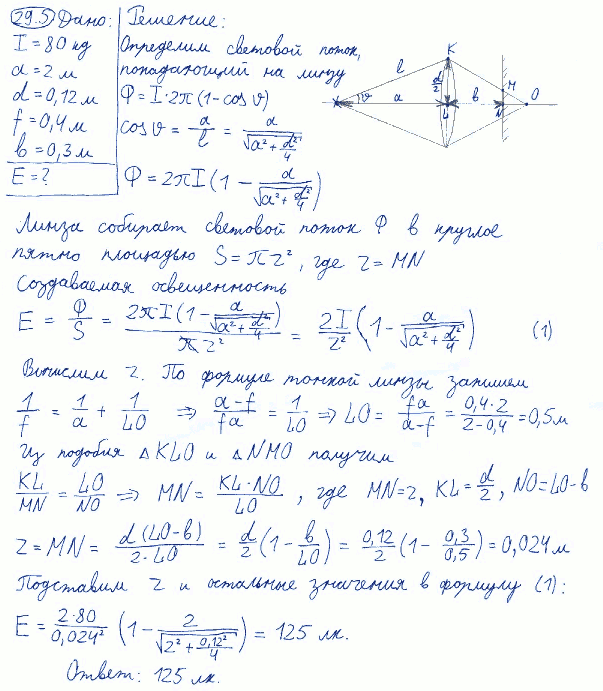 29.5 Дано: Решение:
I = 80 кд
a = 2 м
d = 0,12 м
f = 0,4 м
b = 0,3 м
E = ?
Определим световой поток,
попадающий на линзу
Φ = I·2π(1 - cos ϑ)
cos ϑ = a/l = a/√(a² + d²/4)
Φ = 2πI(1 - a/√(a² + d²/4))
K
l
d/2
ϑ
a
L
b
M
N
O
Линза собирает световой поток Φ в круглое
пятно площадью S = πr², где r = MN
Создаваемая освещенность
E = Φ/S = 2πI(1 - a/√(a² + d²/4))/πr² = 2I/r² (1 - a/√(a² + d²/4)) (1)
Вычислим r. По формуле тонкой линзы запишем
1/f = 1/a + 1/LO ⇒ (a-f)/fa = 1/LO ⇒ LO = fa/(a-f) = 0,4·2/(2-0,4) = 0,5 м
Из подобия △KLO и △NMO получим
KL/MN = LO/NO ⇒ MN = KL·NO/LO, где MN=r, KL = d/2, NO=LO-b
r = MN = d(LO-b)/2·LO = d/2 (1 - b/LO) = 0,12/2 (1 - 0,3/0,5) = 0,024 м
Подставим r и остальные значения в формулу (1):
E = 2·80/0,024² (1 - 2/√(2² + 0,12²/4)) = 125 лк.
Ответ: 125 лк.